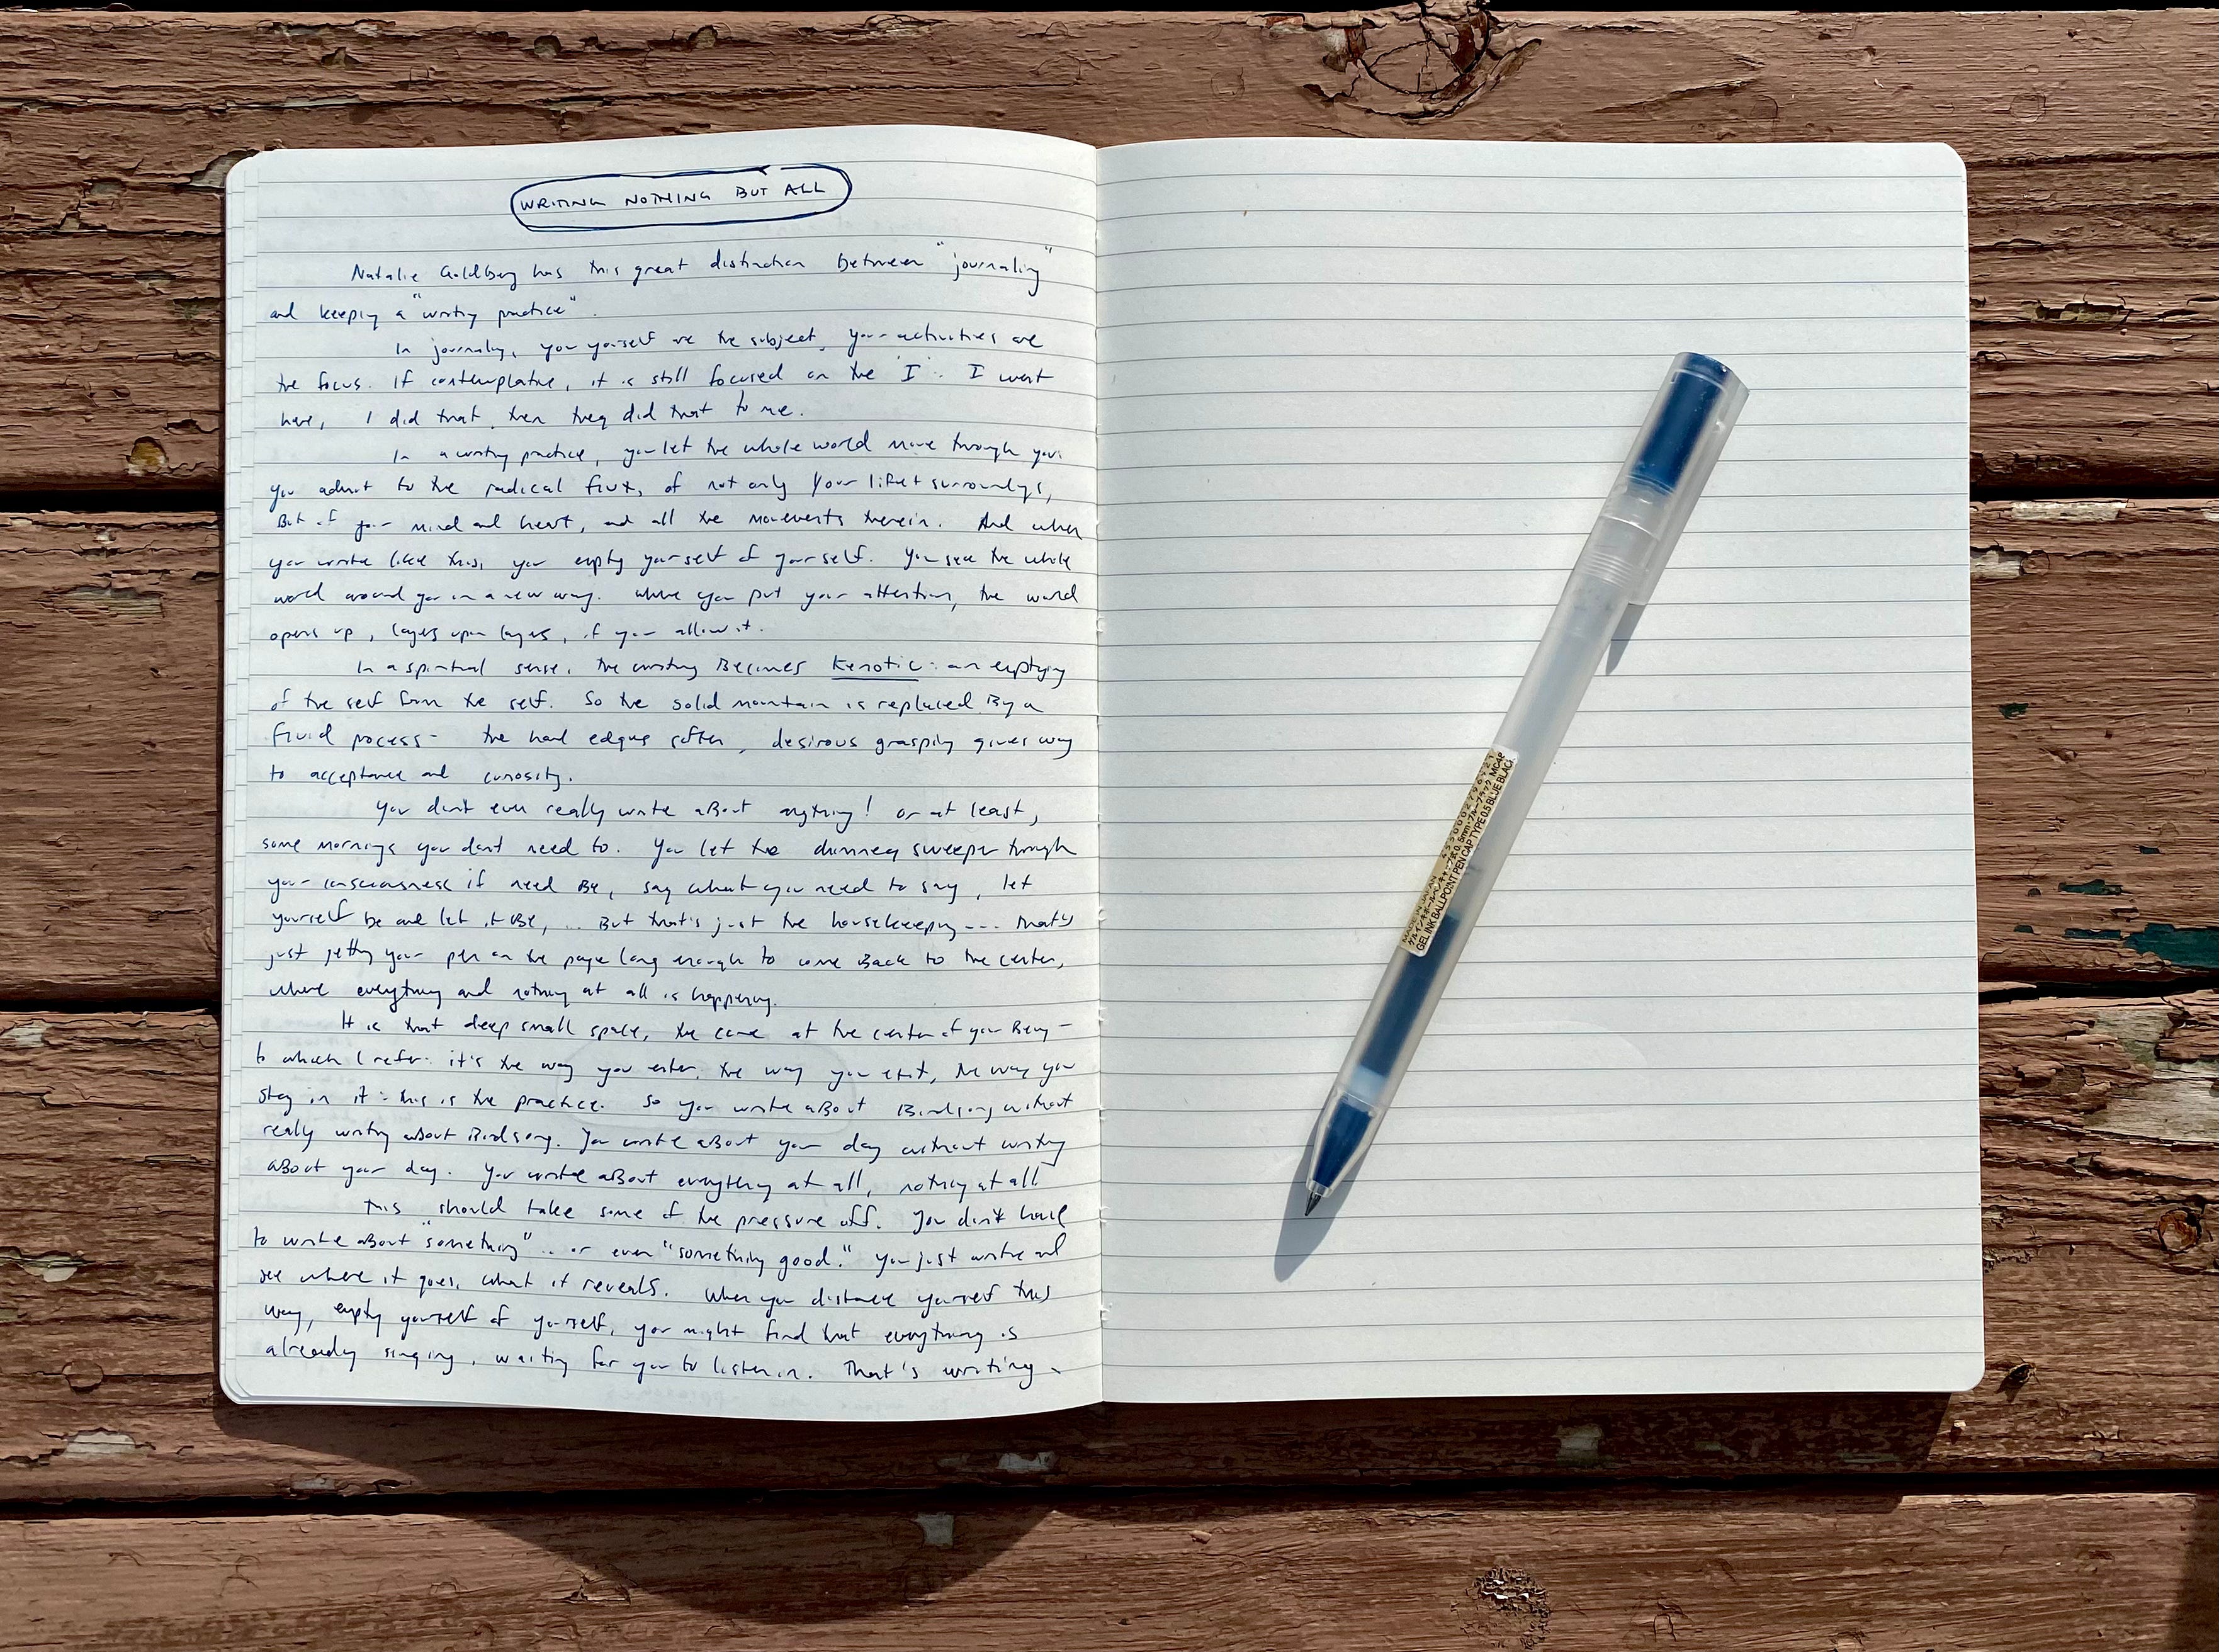 WRITING NOTHING BUT ALL
Natalie Goldberg has this great distinction between "journaling"
and keeping a "writing practice".
In journaling, you yourself are the subject, your activities are
the focus. If contemplative, it is still focused on the 'I'. I went
here, I did that, then they did that to me.
In a writing practice, you let the whole world move through you.
you admit to the radical flux, of not only your life + surroundings,
But of your mind and heart, and all the movements therein. And when
you write like this, you empty yourself of yourself. You see the whole
world around you in a new way. Where you put your attention, the world
opens up, layers upon layers, if you allow it.
In a spiritual sense, the writing Becomes Kenotic: an emptying
of the self from the self. So the solid mountain is replaced By a
fluid process - the hard edges soften, desirous grasping gives way
to acceptance and curiosity.
You don't even really write aBout anything! or at least,
some mornings you don't need to. You let the chimney sweeper through
your consciousness if need Be, say what you need to say, let
yourself be and let it Be, ... But that's just the housekeeping --- that's
just getting your pen on the page long enough to come Back to the center,
where everything and nothing at all is happening.
It is that deep small space, the cave at the center of your Being -
to which I refer: it's the way you enter, the way you exit, the way you
stay in it: this is the practice. So you write aBout Birdsong without
really writing about Birdsong. You write aBout your day without writing
aBout your day. You write aBout everything at all, nothing at all.
This should take some of the pressure off. You don't have
to write about "something".. or even "something good." You just write and
see where it goes, what it reveals. When you distance yourself this
way, empty yourself of yourself, you might find that everything is
already singing, waiting for you to listen in. That's writing.
MADE IN JAPAN
ゲルインキボールペンキャップ式0.5mm・ブルーブラック MC4P
GEL INK BALLPOINT PEN CAP TYPE 0.5 BLUE BLACK